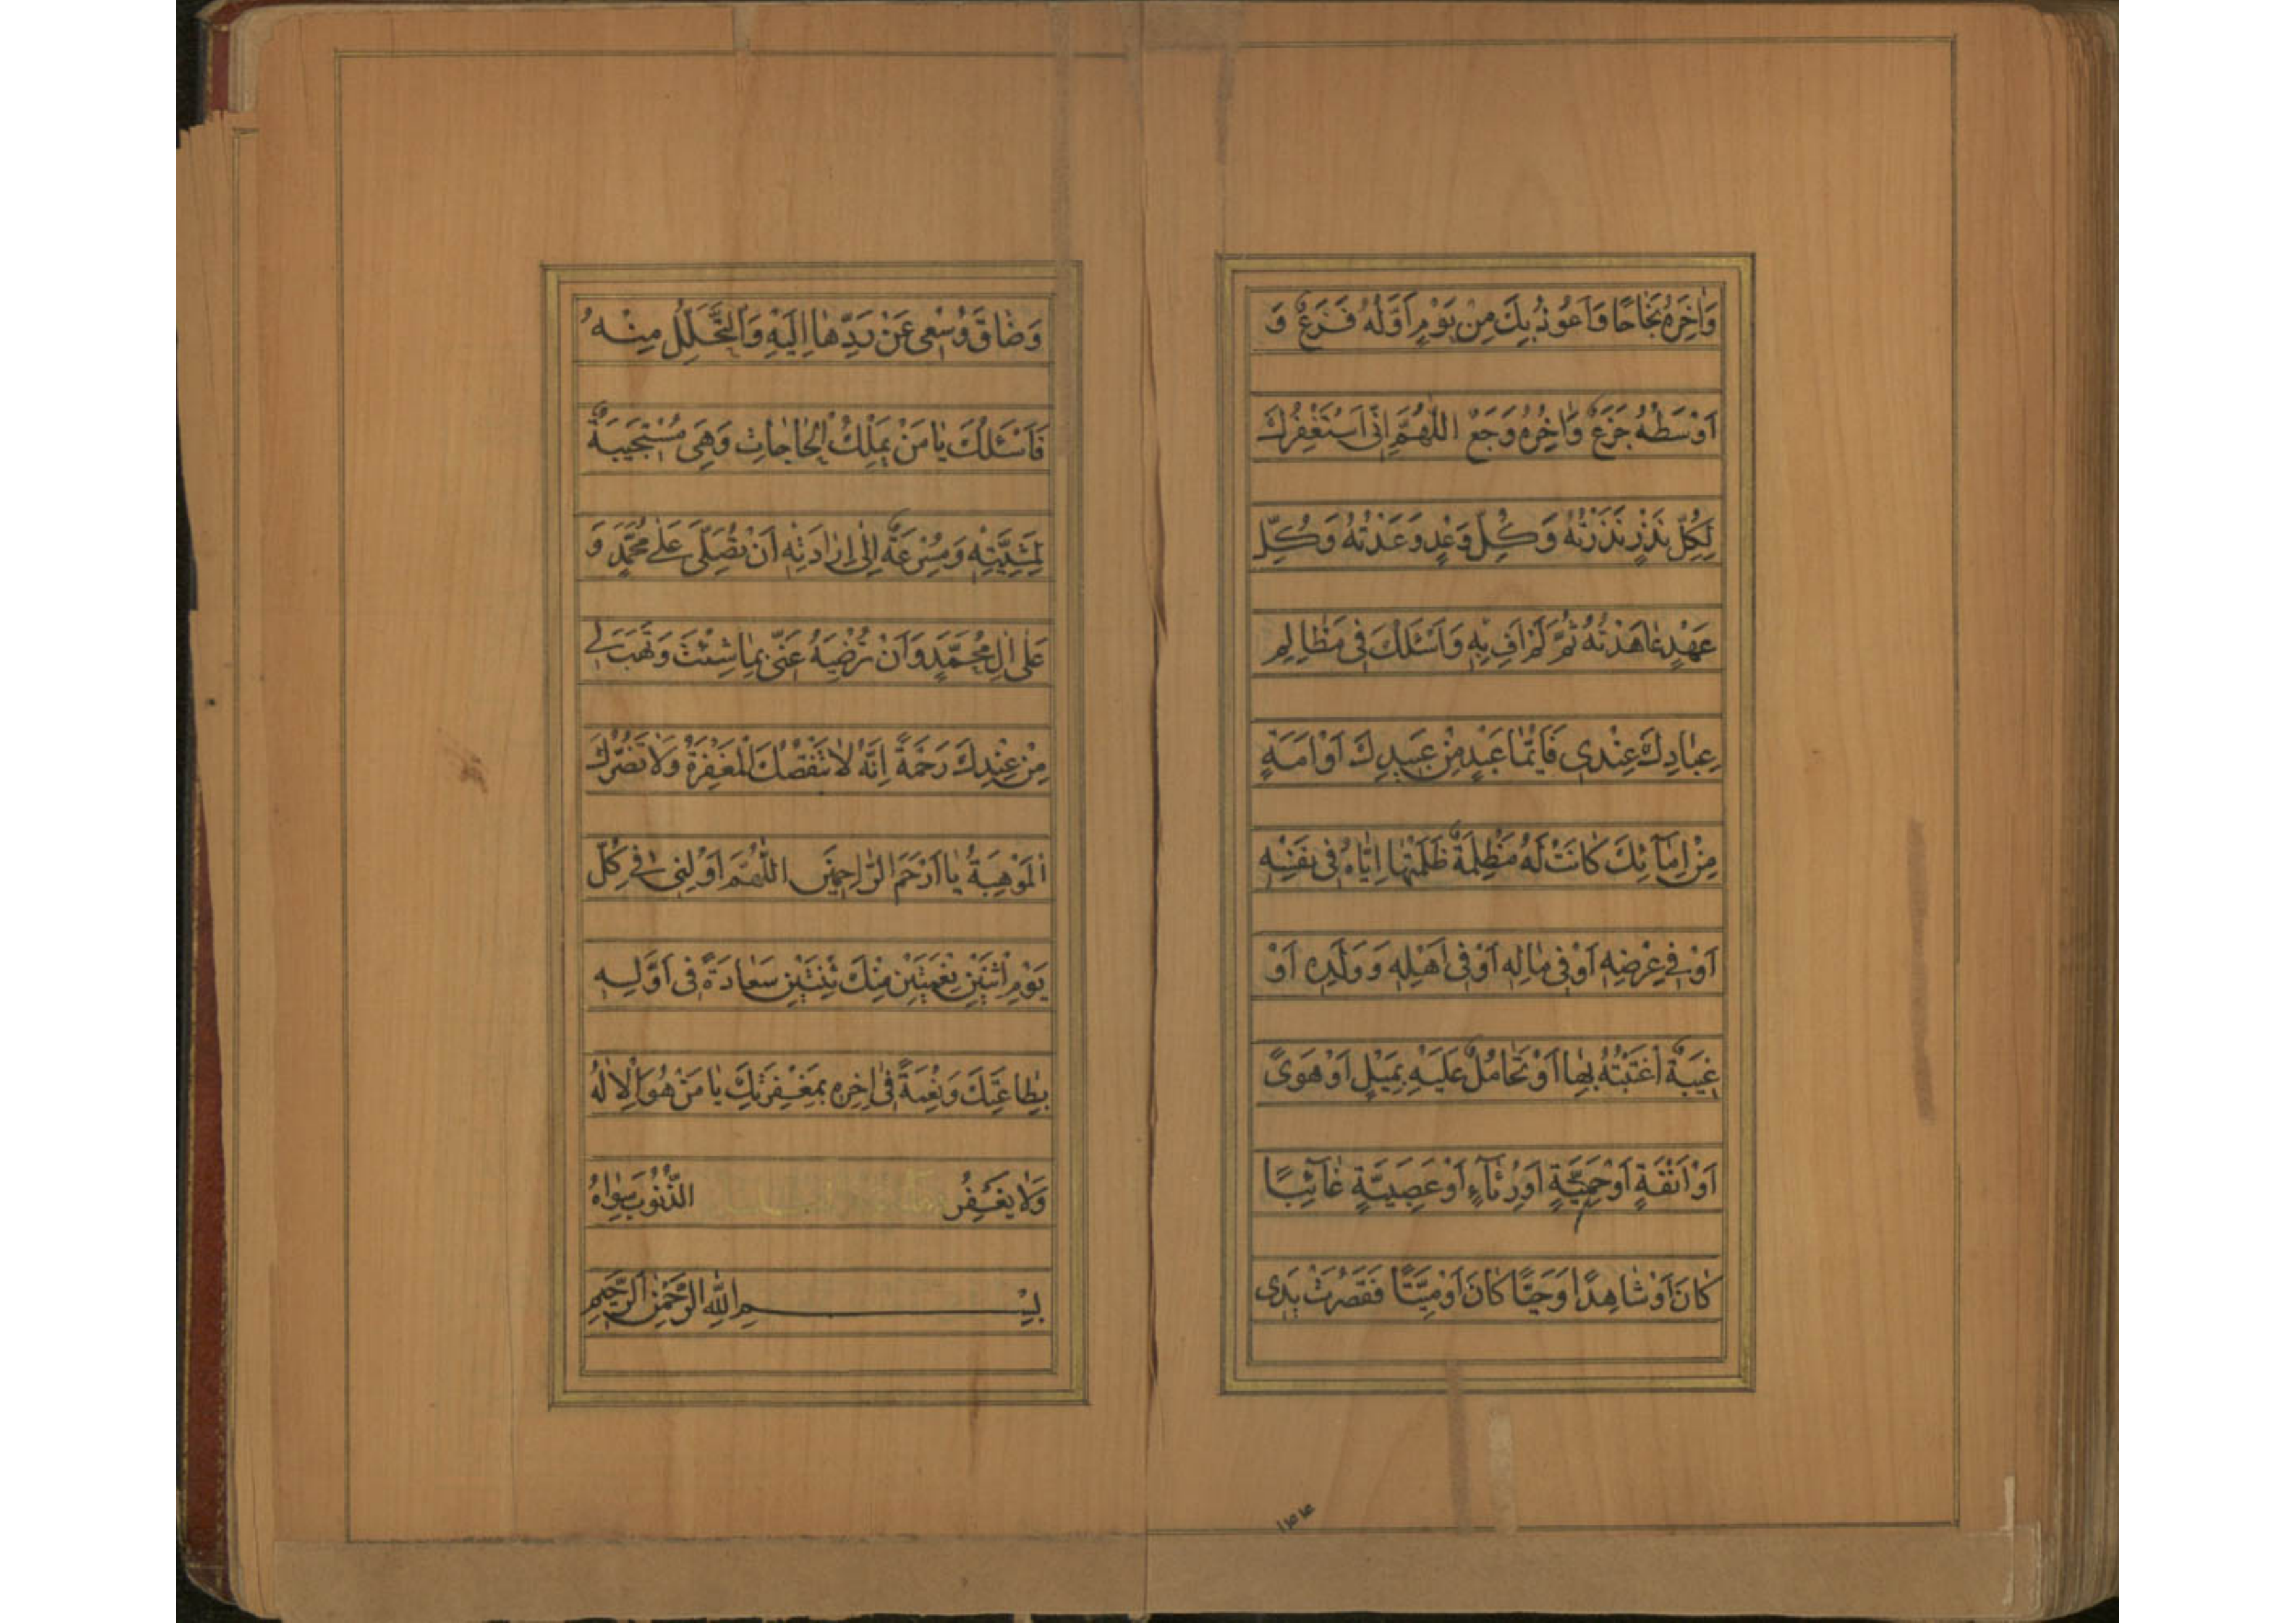 وَاٰخِرَهُ نَجٰاحًا وَاَعُوذُ بِكَ مِنْ يَوْمٍ اَوَّلُهُ فَزَعٌ وَ
اَوْسَطُهُ جَزَعٌ وَاٰخِرُهُ وَجَعٌ اَللّٰهُمَّ اِنّى اَسْتَغْفِرُكَ
لِكُلِّ نَذْرٍ نَذَرْتُهُ وَكُلِّ وَعْدٍ وَعَدْتُهُ وَكُلِّ
عَهْدٍ عٰاهَدْتُهُ ثُمَّ لَمْ اَفِ بِهِ وَاَسْئَلُكَ فى مَظٰالِمِ
عِبٰادِكَ عِنْدى فَاَيُّمٰا عَبْدٍ مِنْ عَبيدِكَ اَوْ اَمَةٍ
مِنْ اِمٰآئِكَ كٰانَتْ لَهُ مَظْلِمَةٌ ظَلَمْتُهٰا اِيّٰاهُ فى نَفْسِهِ
اَوْ فى عِرْضِهِ اَوْ فى مٰالِهِ اَوْ فى اَهْلِهِ وَوَلَدِهِ اَوْ
غيبَةٌ اغْتَبْتُهُ بِهٰا اَوْ تَحٰامُلٌ عَلَيْهِ بِمَيْلٍ اَوْ هَوًى
اَوْ اَنَفَةٍ اَوْ حَمِيَّةٍ اَوْ رِئٰآءٍ اَوْ عَصَبِيَّةٍ غٰآئِبًا
كٰانَ اَوْ شٰاهِدًا وَحَيًّا كٰانَ اَوْ مَيِّتًا فَقَصُرَتْ يَدى
وَضٰاقَ وُسْعى عَنْ رَدِّهٰا اِلَيْهِ وَالتَّحَلُّلِ مِنْهُ
فَاَسْئَلُكَ يٰا مَنْ يَمْلِكُ الْحٰاجٰاتِ وَهِىَ مُسْتَجيبَةٌ
لِمَشِيَّتِهِ وَمُسْرِعَةٌ اِلٰى اِرٰادَتِهِ اَنْ تُصَلِّىَ عَلٰى مُحَمَّدٍ وَ
عَلٰى اٰلِ مُحَمَّدٍ وَاَنْ تُرْضِيَهُ عَنّى بِمٰا شِئْتَ وَتَهَبَ لى
مِنْ عِنْدِكَ رَحْمَةً اِنَّهُ لٰا تَنْقُصُكَ الْمَغْفِرَةُ وَلٰا تَضُرُّكَ
الْمَوْهِبَةُ يٰا اَرْحَمَ الرّٰاحِمينَ اَللّٰهُمَّ اَوْلِنى فى كُلِّ
يَوْمِ اثْنَيْنِ نِعْمَتَيْنِ مِنْكَ ثِنْتَيْنِ سَعٰادَةً فى اَوَّلِهِ
بِطٰاعَتِكَ وَنِعْمَةً فى اٰخِرِهِ بِمَغْفِرَتِكَ يٰا مَنْ هُوَ الْاِلٰهُ
وَلٰا يَغْفِرُ الذُّنُوبَ سِوٰاهُ
بِسْمِ اللّٰهِ الرَّحْمٰنِ الرَّحيمِ
۱۴۴